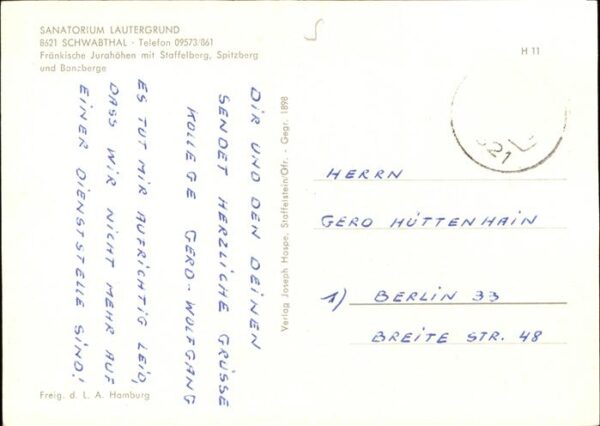 SANATORIUM LAUTERGRUND
8621 SCHWABTHAL · Telefon 09573/861
Fränkische Jurahöhen mit Staffelberg, Spitzberg
und Banzberge
H 11
DIR UND DEN DEINEN
SENDET HERZLICHE GRÜSSE
KOLLEGE GERD-WOLFGANG
ES TUT MIR AUFRICHTIG LEID,
DASS WIR NICHT MEHR AUF
EINER DIENSTSTELLE SIND!
Verlag Joseph Haspe, Staffelstein/Ofr. · Gegr. 1898
HERRN
GERO HÜTTENHAIN
1) BERLIN 33
BREITE STR. 48
Freig. d. L. A. Hamburg